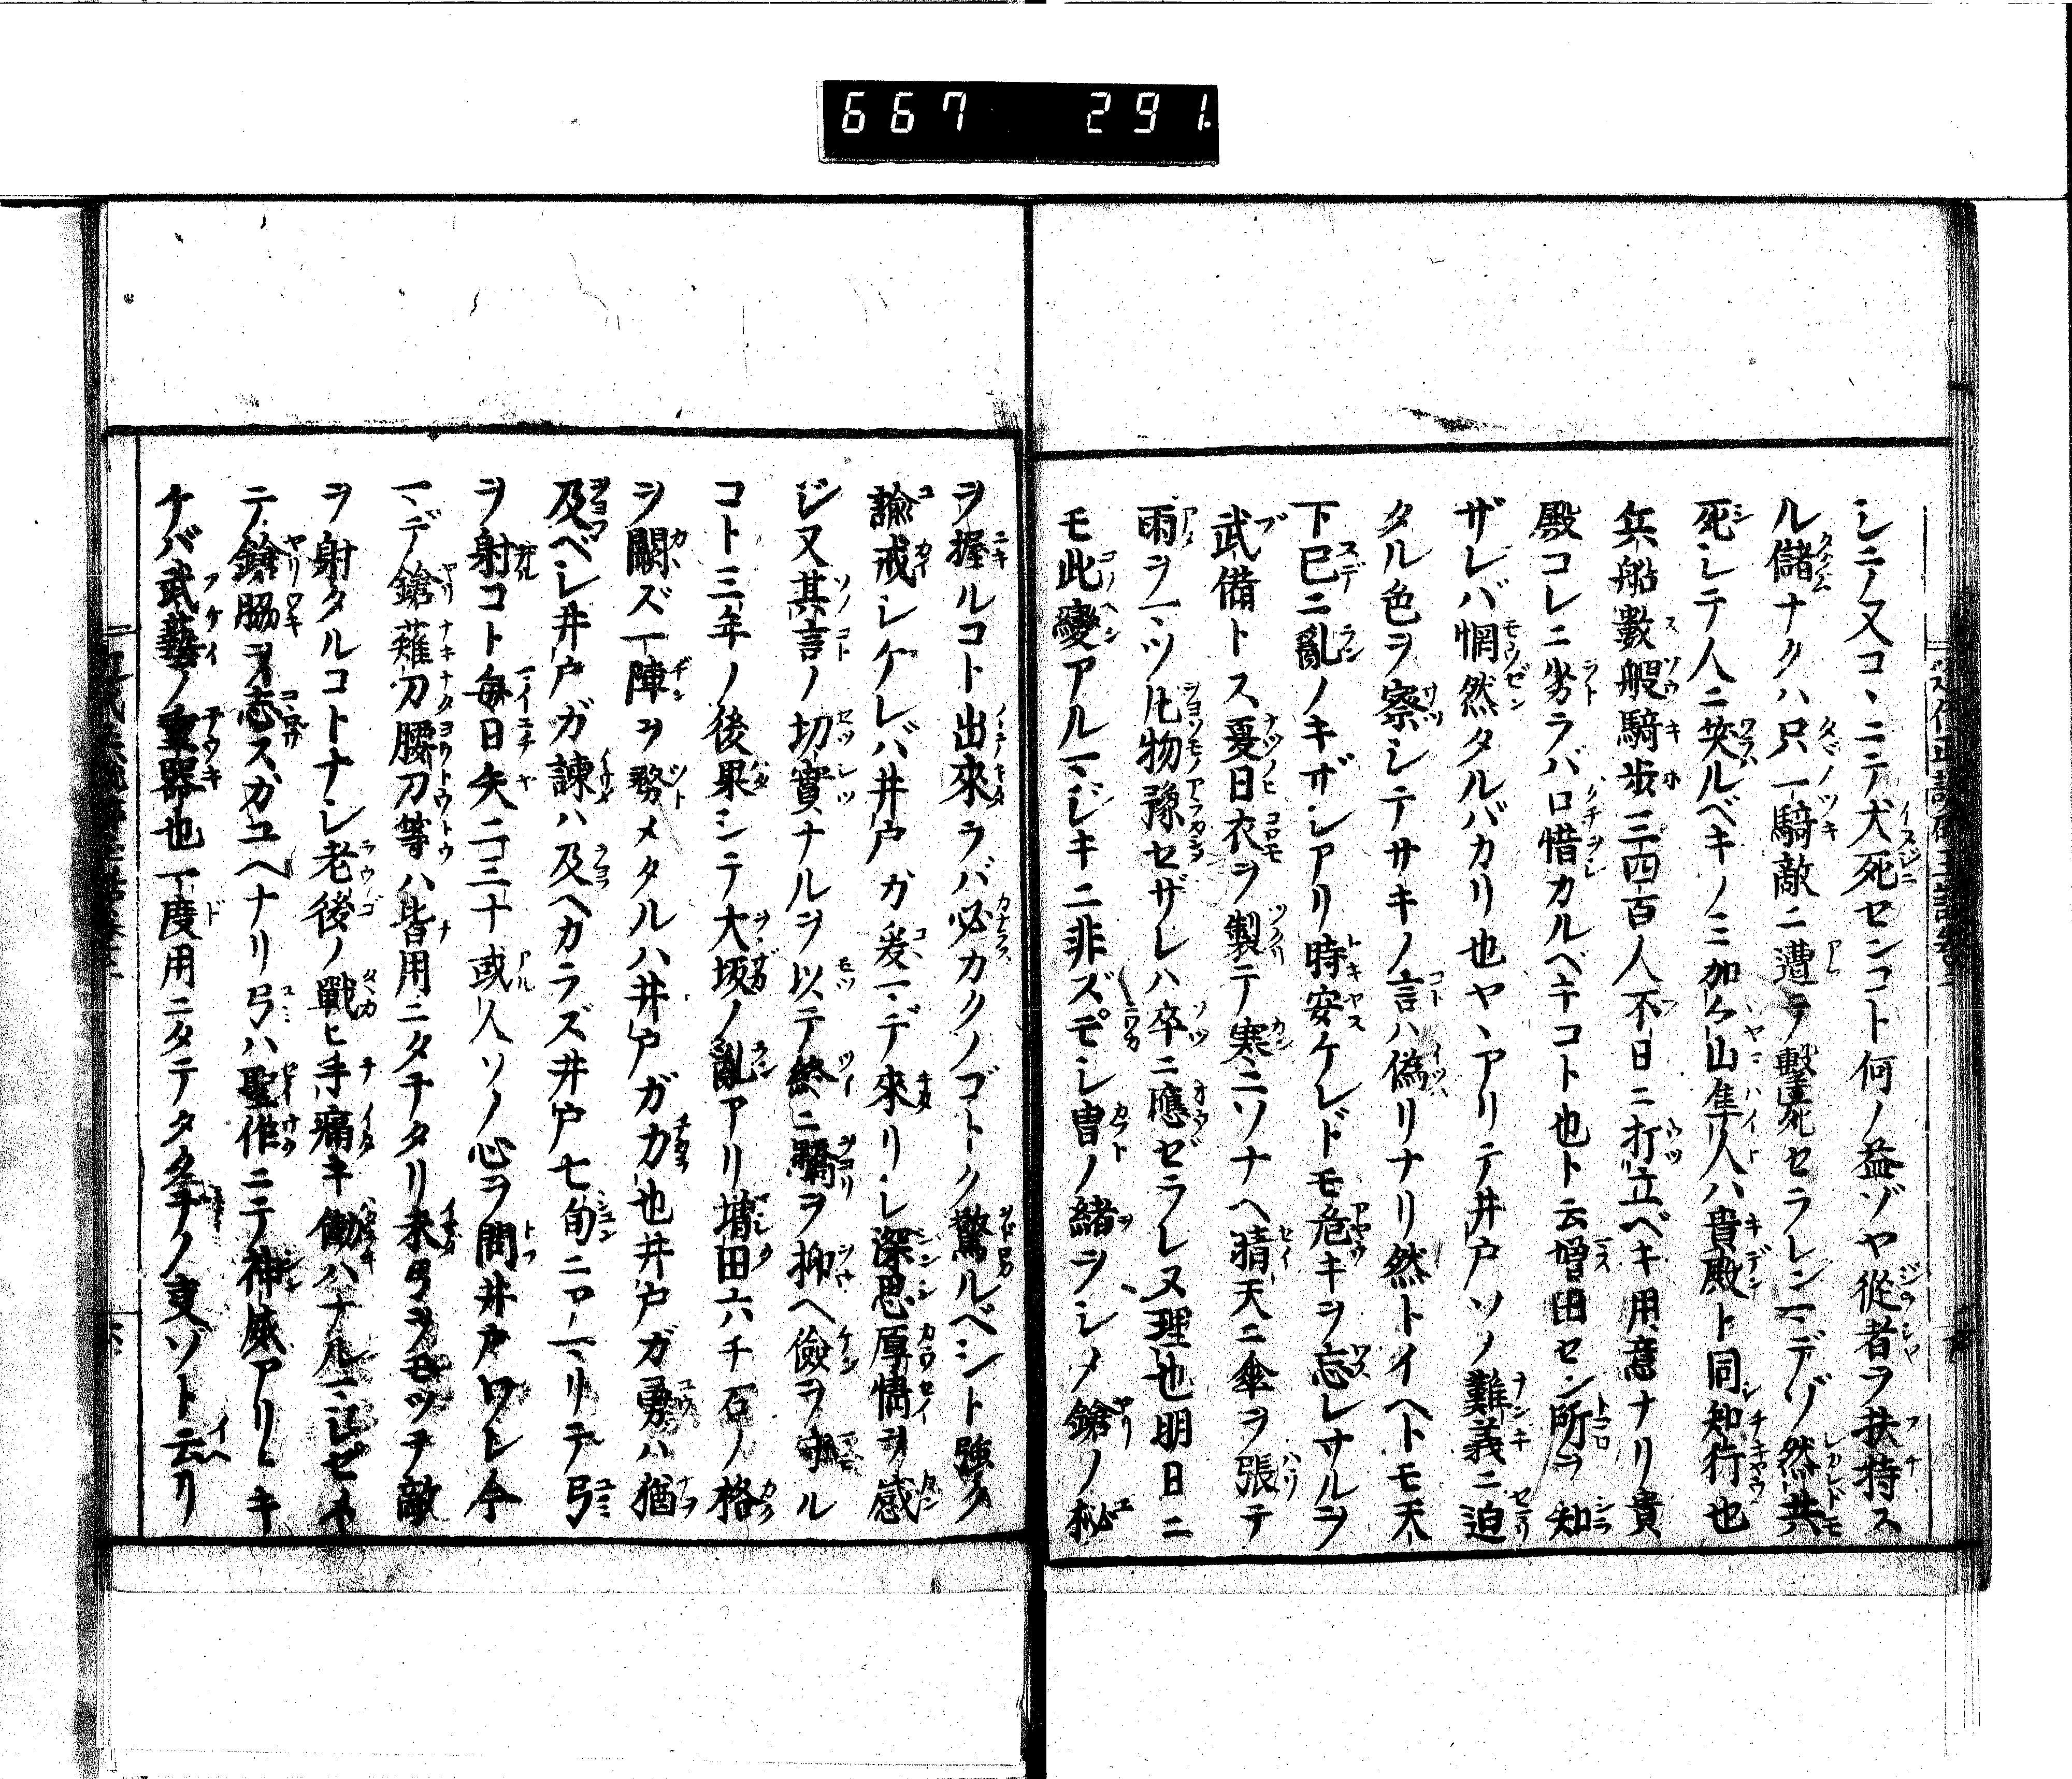 667 291.
シニノ又コヽニテ犬死センコト何ノ益ゾヤ從者ヲ扶持ス
ル儲ナクハ只一騎敵ニ遭テ擊死セラレンマデゾ然共
死シテ人ニ笑ルベキノミ加々山隼人ハ貴殿ト同知行也
兵船數艘騎歩三四百人不日ニ打立ベキ用意ナリ貴
殿コレニ劣ラバ口惜カルベキコト也ト云増田セン所ヲ知
ザレバ惘然タルバカリ也ヤヽアリテ井戸ソノ難義ニ迫
タル色ヲ察シテサキノ言ハ偽リナリ然トイヘトモ天
下已ニ亂ノキザシアリ時安ケレドモ危キヲ忘レサルヲ
武備トス夏日衣ヲ製テ寒ニソナヘ晴天ニ傘ヲ張テ
雨ヲマツ凡物豫セザレハ卒ニ應ゼラレヌ理也明日ニ
モ此變アルマジキニ非ズモシ冑ノ緒ヲシメ鎗ノ柲
ヲ握ルコト出來ラバ必カクノゴトク驚ルベシト強ク
諭戒シケレバ井戸ガ爰マデ來リシ深思厚情ヲ感
ジ又其言ノ切實ナルヲ以テ終ニ驕ヲ抑ヘ儉ヲ守ル
コト三年ノ後果シテ大坂ノ亂アリ増田六千石ノ格
ヲ闕ズ一陣ヲ務メタルハ井戸ガ力也井戸ガ勇ハ猶
及ベシ井戸ガ諫ハ及ヘカラズ井戸七旬ニアマリテ弓
ヲ射コト毎日矢二三十或人ソノ心ヲ問井戸ワレ今
マデ鎗薙刀腰刀等ハ皆用ニタチタリ未弓ヲモツテ敵
ヲ射タルコトナシ老後ノ戰ヒ手痛キ働ハナルマジケレ
テ鎗脇ヲ志スガユヘナリ弓ハ聖作ニテ神威アリトキ
ケバ武藝ノ重器也一度用ニタテタキノ事ゾト云リ